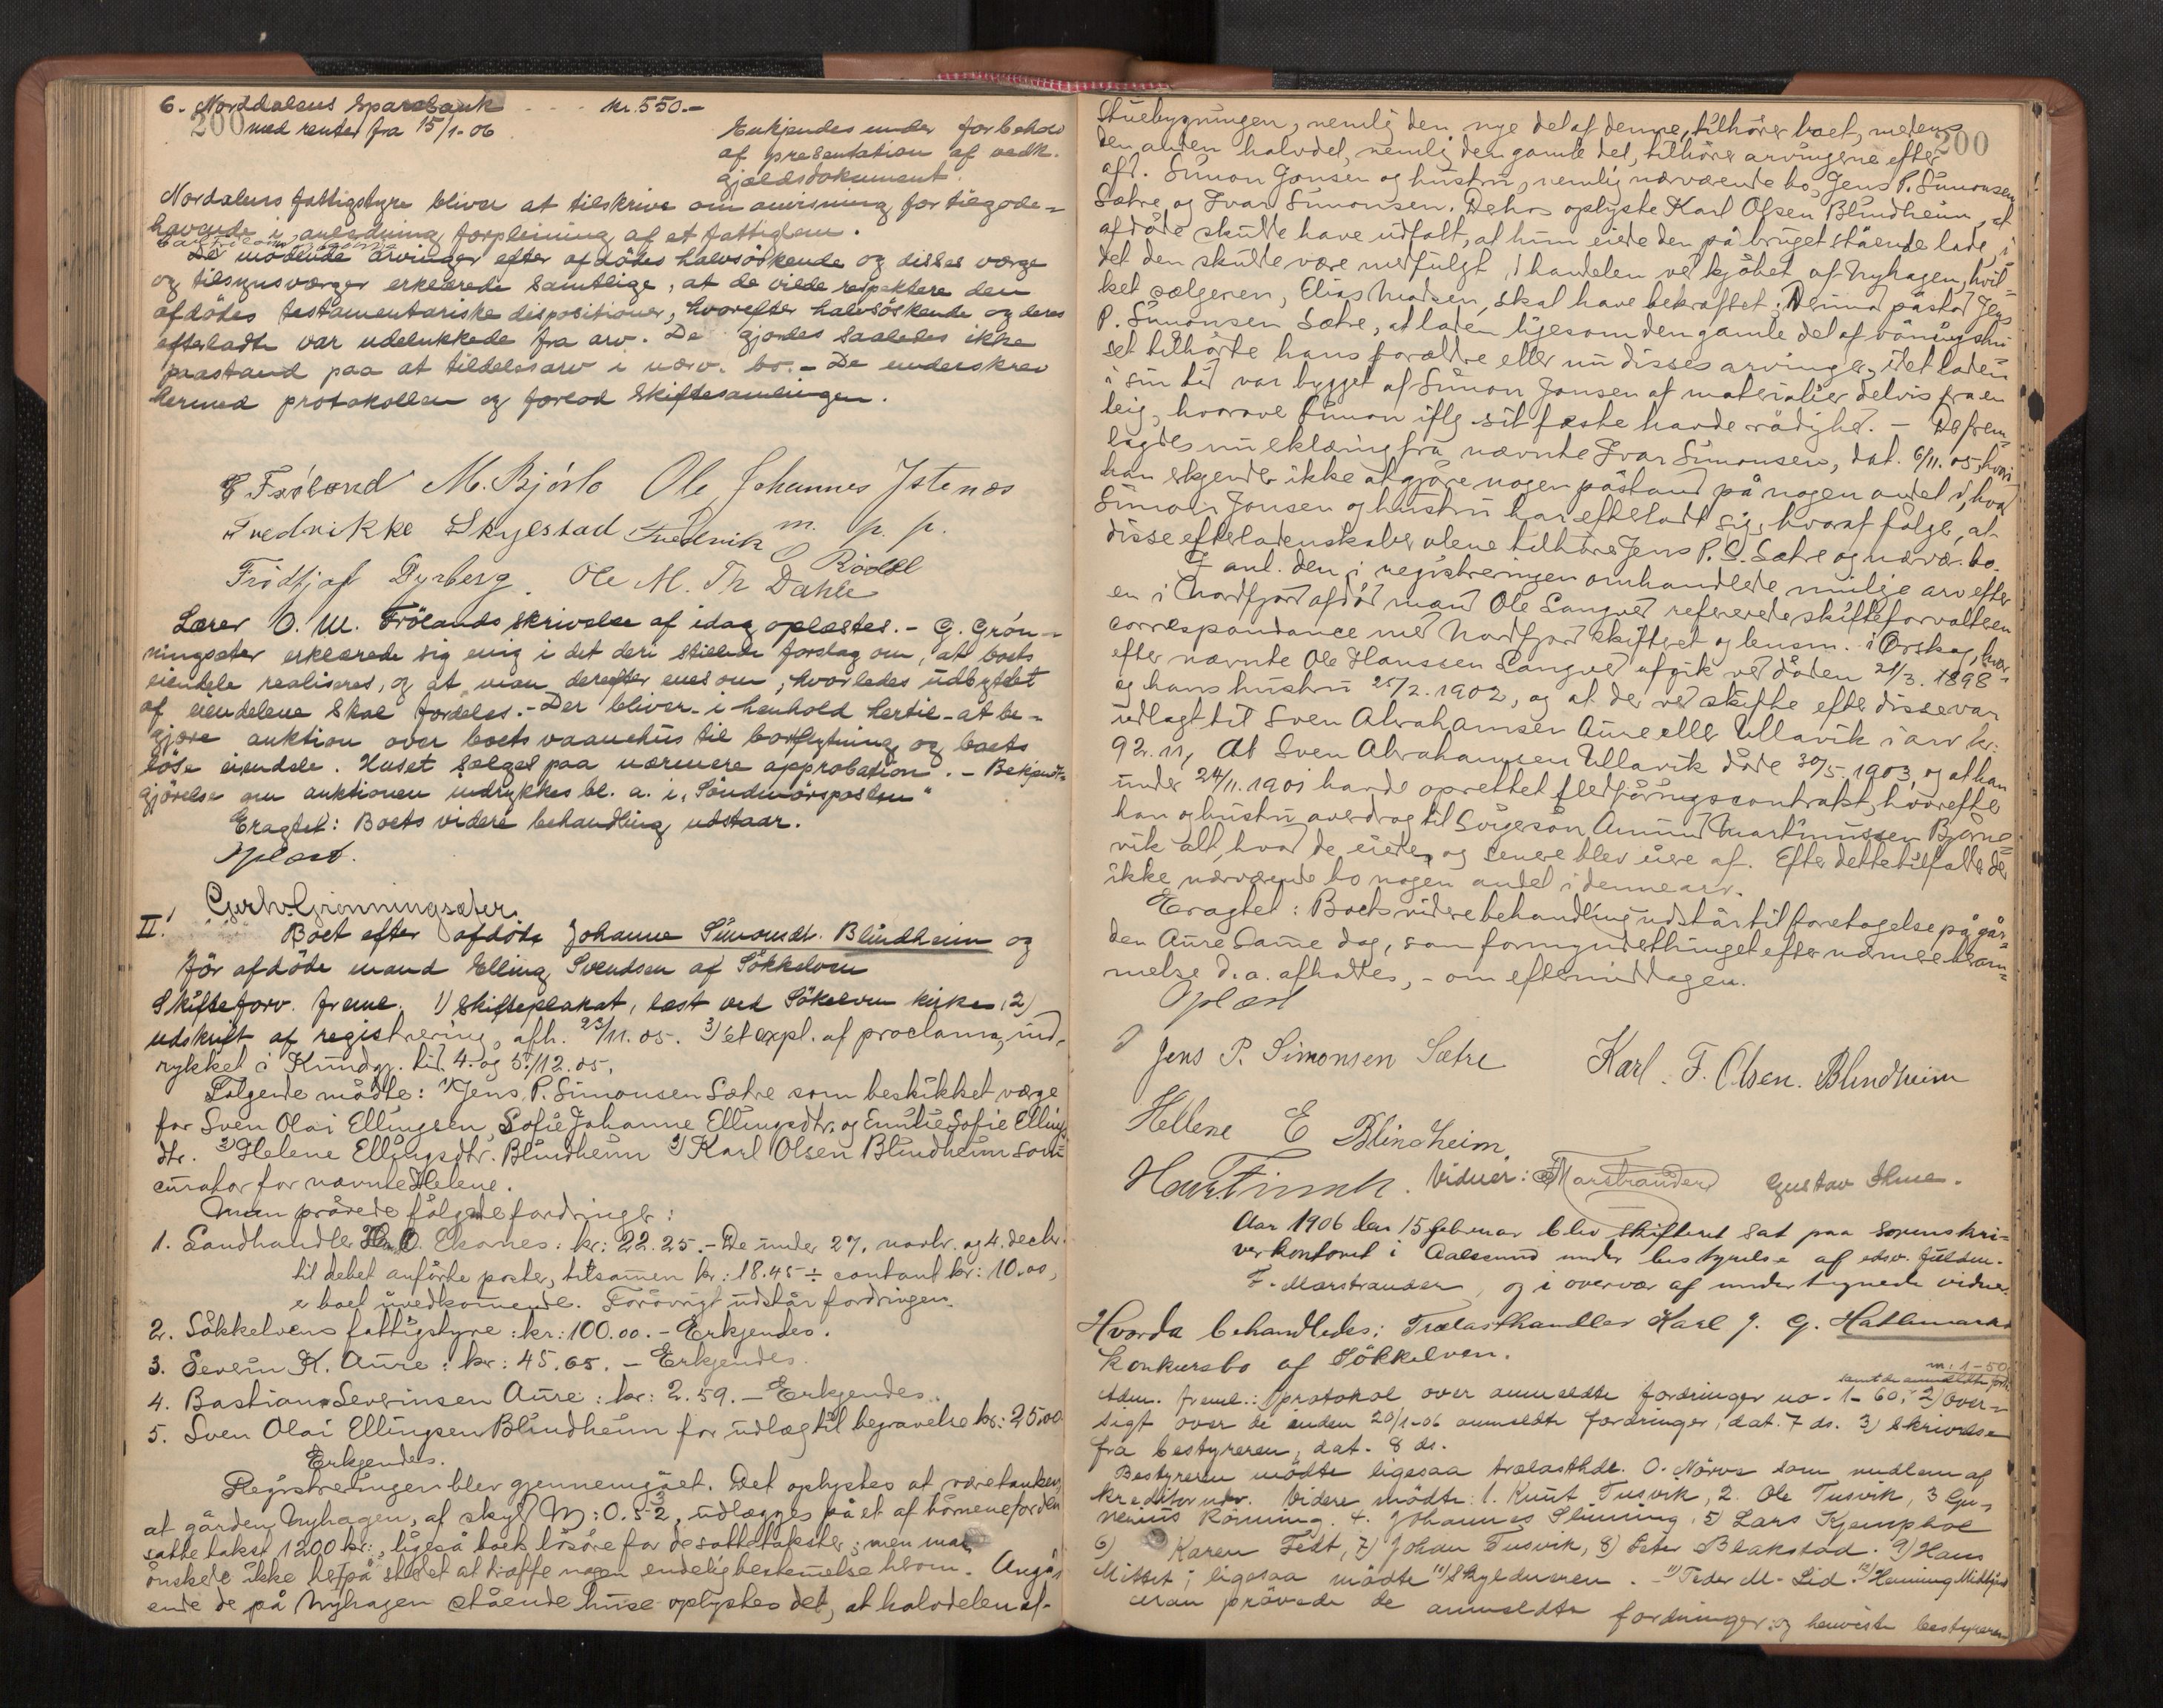 6. Norddalens Sparebank - - - kr. 550.-
200 med renter fra 15/1-06
Erkjendes under forbehold
af presentation af vedk.
gjældsdokument.
Nordalens fattigstyre bliver at tilskrive om anvisning for tilgode-
havende i anledning forpleining af et fattiglem.
De mødende arvinger efter afdødes halvsøskende og disses værge
og tilsynsværger erklærede samtlige, at de vilde respektere den
afdødes testamentariske dispositioner, hvorefter halvsøskende og deres
efterladte var udelukkede fra arv. De gjordes saaledes ikke
paastand paa at tildeles arv i nærv. bo. - De underskrev
hermed protokollen og forlod skiftesamlingen.
E Frøland M. Bjørlo Ole Johannes Ystenes
Fredrikke Skyestad Fredrik m. p. p.
O Rødal
Fridtjof Dyrberg. Ole M. Th Dahle
Lærer O. M. Frölands skrivelse af idag oplæstes. - G. Grön-
ningsæter erklærede sig enig i det deri stillede forslag om, at boets
eiendele realiseres, og at man derefter enes om, hvorledes udbyttet
af eiendelene skal fordeles. - Der bliver i henhold hertil at be-
gjøre auktion over boets vaanehus til bortflytning og boets
løse eiendele. Huset sælges paa nærmere approbation. - Bekjendt-
gjørelse om auktionen indrykkes bl. a. i "Söndmörsposten"
Eragtet: Boets videre behandling udstaar.
Oplæst.
Gjert Grönningsæter
II. Boet efter afdöde Johanne Simonsdt. Blindheim og
för afdöde mand Elling Svendsen af Sökkelven
Skifteforv. freml. 1) skifteplakat, læst ved Sökelven kirke, 2)
udskrift af registrering, afh. 23/11.05. 3) et expl. af proclama, ind-
rykket i Kundgj. tid. 4. og 5/12.05.
Fölgende mödte: 1) Jens P. Simonsen Sætre som beskikket værge
for Sven Olai Ellingsen, Sofie Johanne Ellingsdtr. og Emilie Sofie Ellings
dtr. 2) Helene Ellingsdtr. Blindheim 3) Karl Olsen Blindheim som
curator for nævnte Helene.
Man prövede fölgende fordringer:
1. Landhandler H. O. Ekornes: kr: 22.25. - De under 27. novbr. og 4. decbr.
til debet anförte poster, tilsammen kr: 18.45 ÷ contant kr: 10.00,
er boet uvedkommende. Forövrigt udstår fordringen.
2. Sökkelvens fattigstyre: kr: 100.00. - Erkjendes.
3. Severin K. Aure: kr: 45.65. - Erkjendes.
4. Bastian Severinsen Aure: kr: 2.59. - Erkjendes.
5. Sven Olai Ellingsen Blindheim for udlæg til begravelse kr: 25.00
Erkjendes.
Registreringen blev gjennemgået. Det oplystes at være tanken,
at gården Nyhagen, af skyld M: 0.52, udlægges på et af börnene for den
satte takst 1200 kr:, ligeså boets lösöre for de satte takster; men man
önskede ikke her på stedet at træffe nogen endelig bestemmelse herom. Angå-
ende de på Nyhagen stående huse oplystes det, at halvdelen af
Stuebygningen, nemlig den nye del af denne, tilhörer boet, medens
200
den anden halvdel, nemlig den gamle del, tilhörer arvingerne efter
afd. Simon Jonsen og hustru, nemlig nærværende bo, Jens P. Simonsen
Sætre og Ivar Simonsen. Dehos oplyste Karl Olsen Blindheim, at
afdöde skulde have udtalt, at hun eiede den på bruget stående lade, i
det den skulde være medfulgt i handelen ved kjöbet af Nyhagen, hvil-
ket sælgeren, Elias Madsen, skal have bekræftet. Derimod påstod Jens
P. Simonsen Sætre, at laden ligesom den gamle del af våningshu-
set tilhörte hans forældre eller nu disses arvinger, idet laden
i sin tid var bygget af Simon Jonsen af materialier delvis fra en
leig, hvorove Simon iflg. sit fæste havde rådighed. - Der frem-
lagdes nu erklæring fra nævnte Ivar Simonsen, dat. 6/11.05, hvori
han erkjender ikke at gjöre nogen påstand på nogen andel i, hvad
Simon Jonsen og hustru har efterladt sig, hvoraf fölger, at
disse efterladenskaber alene tilhöre Jens P. S. Sætre og nærvær. bo.
I anl. den i registreringen omhandlede mulige arv efter
en i Nordfjord afdöd mand Ole Langvet refererede skifteforvalteren
correspondance med Nordfjord skifteret og lensm. i Örskog, hvor-
efter nævnte Ole Hanssen Langvet afgik ved döden 21/3. 1898
og hans hustru 25/2. 1902, og at der ved skifte efter disse var
udlagt til Sven Abrahamsen Aure eller Ullavik i arv kr:
92.11, At Sven Abrahamsen Ullavik döde 30/5. 1903, og at han
under 24/11.1901 havde oprettet fledföringscontrakt, hvorefter
han og hustru overdrog til Svigersön Amund Martinussen Bjørne-
vik alt, hvad de eiede, og senere blev eiere af. Efter dette tilfaldt der
ikke nærværende bo nogen andel i denne arv.
Eragtet: Boets videre behandling udstår til foretagelse på går-
den Aure samme dag, som formynderthinget efter nærmere beram-
melse d. a. afholdes, - om eftermiddagen.
Oplæst
Jens P. Simonsen Sætre Karl. F. Olsen. Blindheim
Hellene E Blindheim.
Finch. Vidner: Marstrander Gustav Thue.
Aar 1906 den 15 februar blev skifteret sat paa sorenskri-
verkontoret i Aalesund under bestyrelse af edsv. fuldm.
F. Marstrander, og i overvær af undertegnede vidner.
Hvorda behandledes: Trælasthandler Karl J. G. Hatlemarks
konkursbo af Sökkelven.
Adm. freml.: 1) protokol over anmeldte fordringer no - 1-60, 2) over-
sigt over de inden 20/1-06 anmeldte fordringer, dat. 7 ds. 3) skrivelse
fra bestyreren, dat. 8 ds.
Bestyreren mödte ligesaa trælasthdl. O. Nörve som medlem af
kreditorudv. Videre mödte: 1. Knut Tusvik, 2. Ole Tusvik, 3
Rönning. 4. Johannes Slinning, 5) Lars Kjemphol
6) Karen Fedt, 7) Johan Tusvik, 8) Peter Blakstad. 9) Hans
; ligesaa mödte skyldneren. 11) Peder M. Lid. 12) Henning
Man prövede de anmeldte fordringer og henviste bestyreren